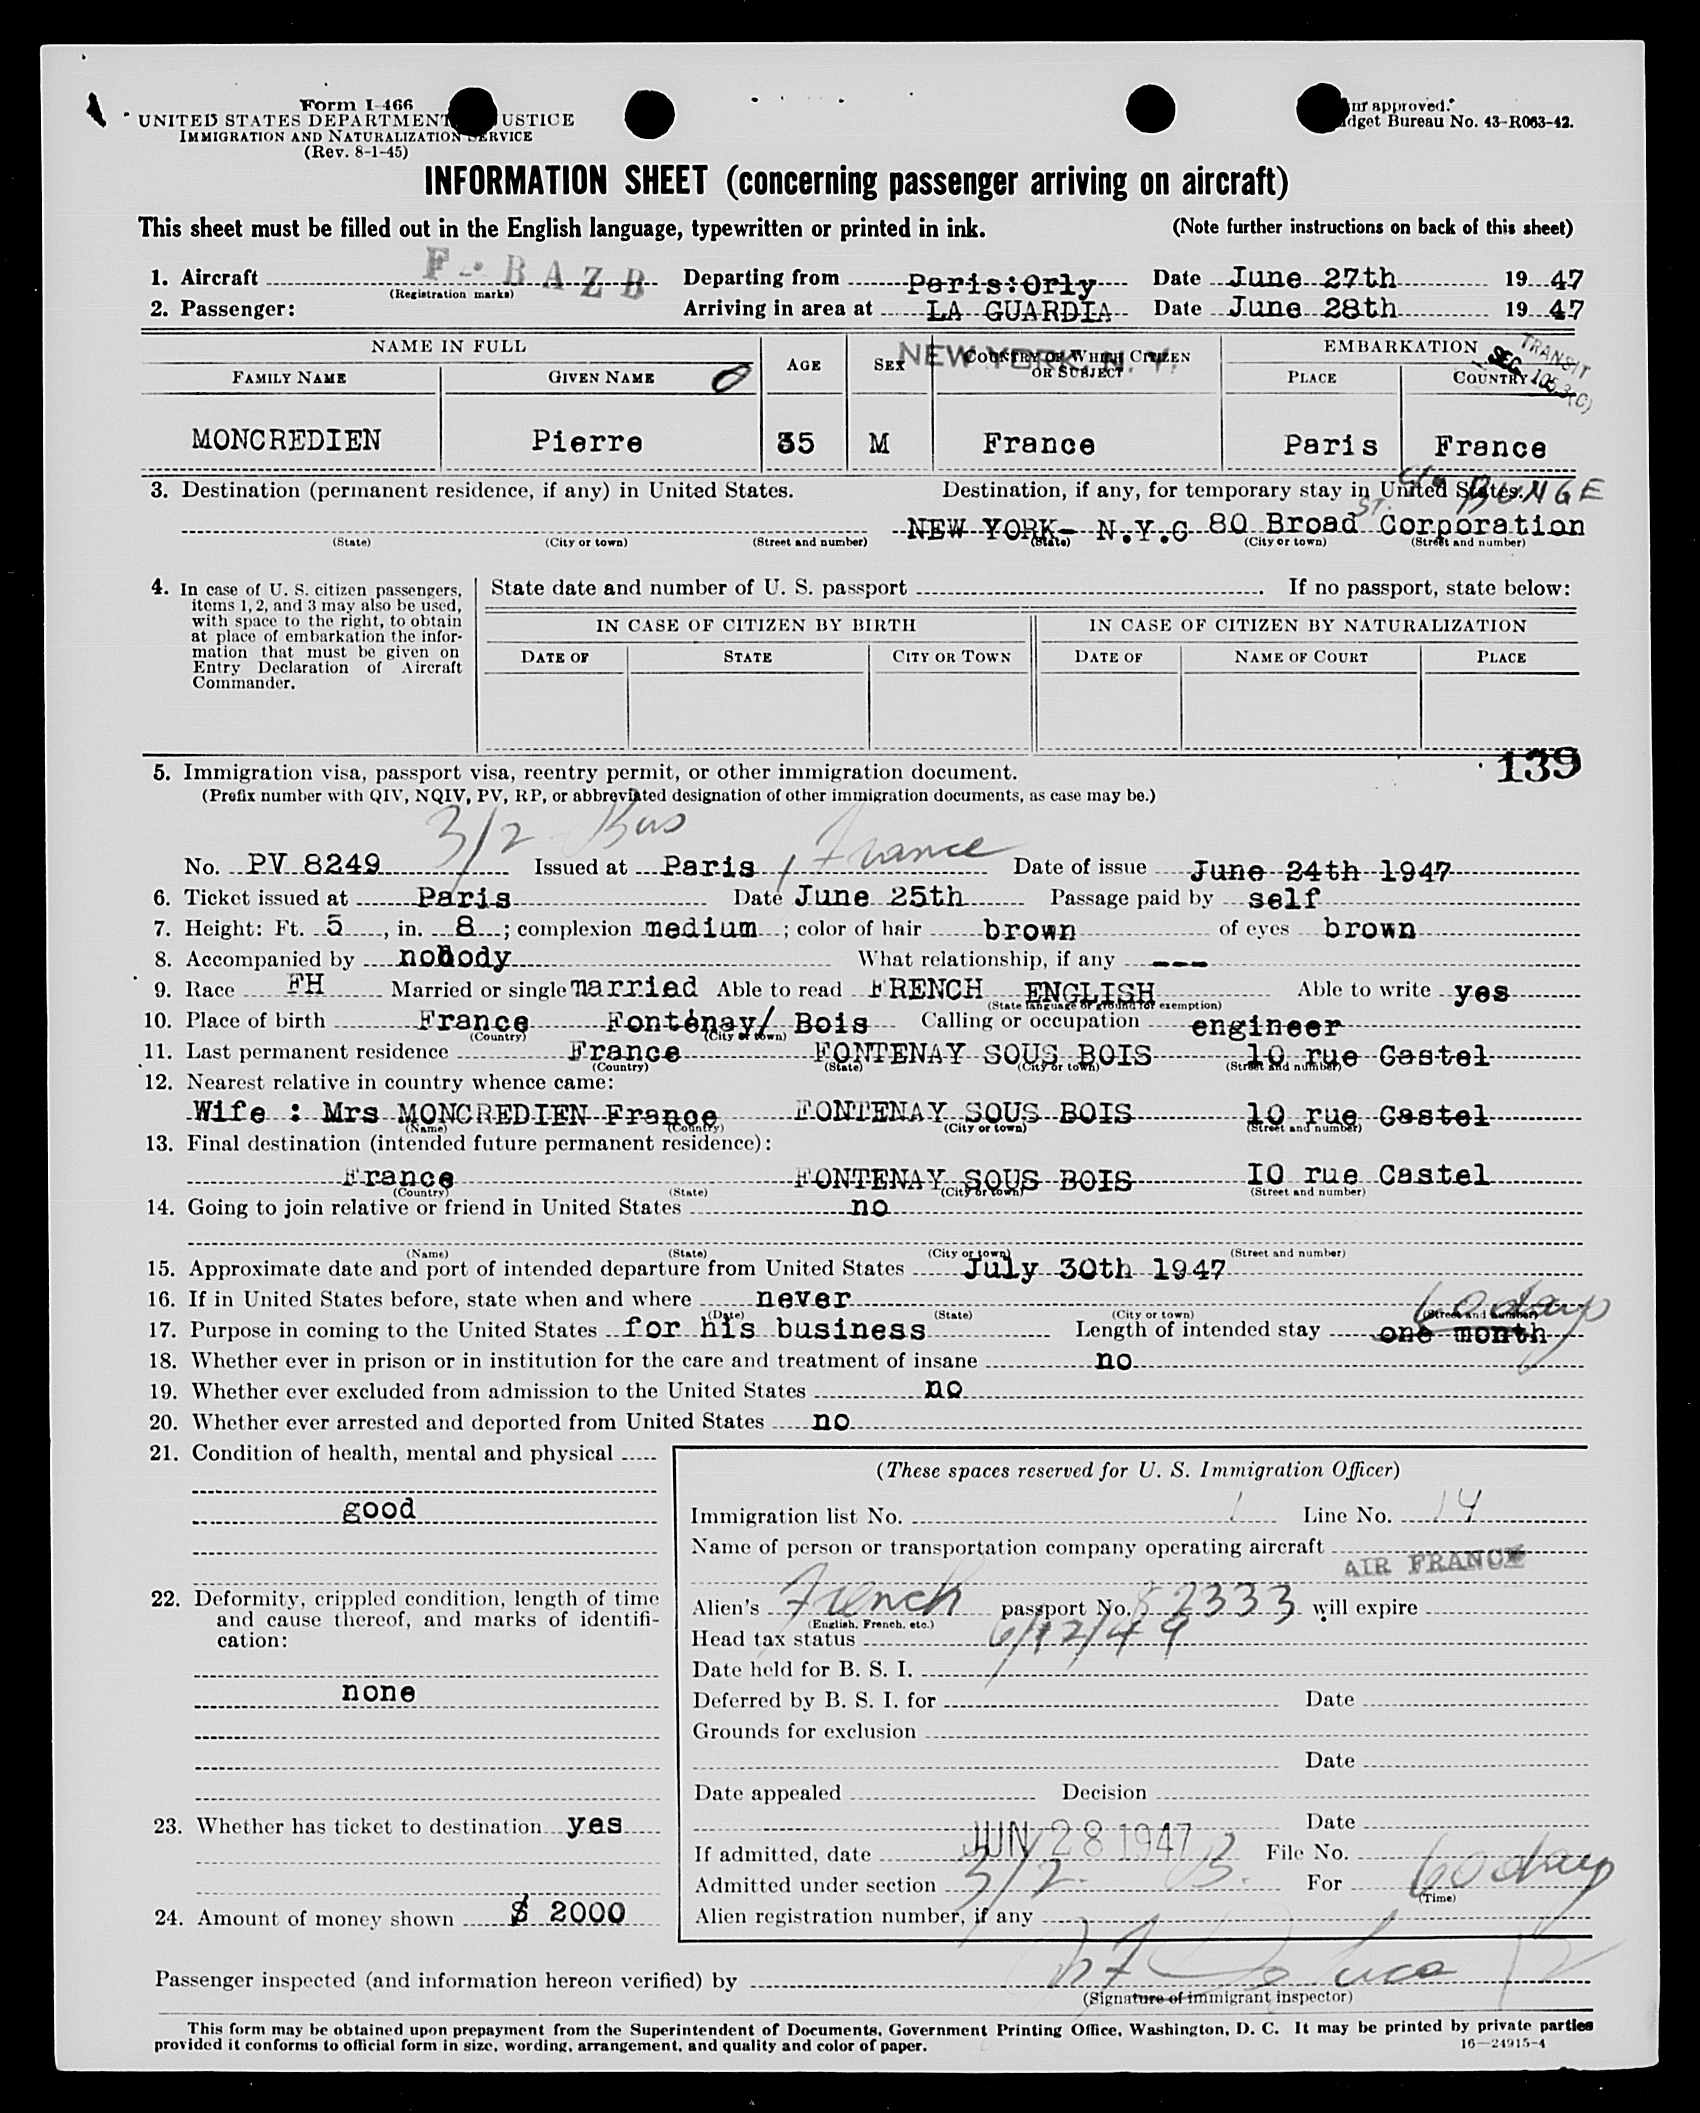 Form I-466
UNITED STATES DEPARTMENT USTICE
IMMIGRATION AND NATURALIZATION SERVICE
(Rev. 8-1-45)
approved.
dget Bureau No. 43-R063-42.
INFORMATION SHEET (concerning passenger arriving on aircraft)
This sheet must be filled out in the English language, typewritten or printed in ink. (Note further instructions on back of this sheet)
1. Aircraft F-BAZB Departing from Paris:Orly Date June 27th 1947
(Registration marks)
2. Passenger: Arriving in area at LA GUARDIA Date June 28th 1947
NEW YORK, N. Y.
TRANSIT
SEC. 105.3(C)
NAME IN FULL AGE SEX COUNTRY OF WHICH CITIZEN OR SUBJECT EMBARKATION
FAMILY NAME GIVEN NAME PLACE COUNTRY
MONCREDIEN Pierre 35 M France Paris France
3. Destination (permanent residence, if any) in United States. Destination, if any, for temporary stay in United States.
c/o BUNGE
NEW YORK- N.Y.C 80 Broad ST. Corporation
(State) (City or town) (Street and number) (State) (City or town) (Street and number)
4. In case of U. S. citizen passengers, items 1, 2, and 3 may also be used, with space to the right, to obtain at place of embarkation the information that must be given on Entry Declaration of Aircraft Commander.
State date and number of U. S. passport . If no passport, state below:
IN CASE OF CITIZEN BY BIRTH IN CASE OF CITIZEN BY NATURALIZATION
DATE OF STATE CITY OR TOWN DATE OF NAME OF COURT PLACE
139
5. Immigration visa, passport visa, reentry permit, or other immigration document.
(Prefix number with QIV, NQIV, PV, RP, or abbreviated designation of other immigration documents, as case may be.)
3/2 Bus
No. PV 8249 Issued at Paris, France Date of issue June 24th 1947
6. Ticket issued at Paris Date June 25th Passage paid by self
7. Height: Ft. 5, in. 8; complexion medium; color of hair brown of eyes brown
8. Accompanied by nobody What relationship, if any ---
9. Race FH Married or single married Able to read FRENCH ENGLISH Able to write yes
(State language or ground for exemption)
10. Place of birth France Fontenay/ Bois Calling or occupation engineer
(Country) (City or town)
11. Last permanent residence France FONTENAY SOUS BOIS 10 rue Castel
(Country) (State) (City or town) (Street and number)
12. Nearest relative in country whence came:
Wife : Mrs MONCREDIEN France FONTENAY SOUS BOIS 10 rue Castel
(Name) (Country) (City or town) (Street and number)
13. Final destination (intended future permanent residence):
France FONTENAY SOUS BOIS IO rue Castel
(Country) (State) (City or town) (Street and number)
14. Going to join relative or friend in United States no
(Name) (State) (City or town) (Street and number)
15. Approximate date and port of intended departure from United States July 30th 1947
16. If in United States before, state when and where never
(Date) (State) (City or town) (Street and number)
60 days
17. Purpose in coming to the United States for his business Length of intended stay one month
18. Whether ever in prison or in institution for the care and treatment of insane no
19. Whether ever excluded from admission to the United States no
20. Whether ever arrested and deported from United States no
21. Condition of health, mental and physical
good
22. Deformity, crippled condition, length of time and cause thereof, and marks of identification:
none
23. Whether has ticket to destination yes
24. Amount of money shown $ 2000
(These spaces reserved for U. S. Immigration Officer)
Immigration list No. 1 Line No. 14
Name of person or transportation company operating aircraft
AIR FRANCE
Alien's French passport No. 82333 will expire
(English, French, etc.)
6/12/49
Head tax status
Date held for B. S. I.
Deferred by B. S. I. for Date
Grounds for exclusion
Date
Date appealed Decision
Date
If admitted, date JUN 28 1947 File No.
Admitted under section 3/2. B. For 60 days
(Time)
Alien registration number, if any
Passenger inspected (and information hereon verified) by
(Signature of immigrant inspector)
This form may be obtained upon prepayment from the Superintendent of Documents, Government Printing Office, Washington, D. C. It may be printed by private parties
provided it conforms to official form in size, wording, arrangement, and quality and color of paper.
16—24915-4